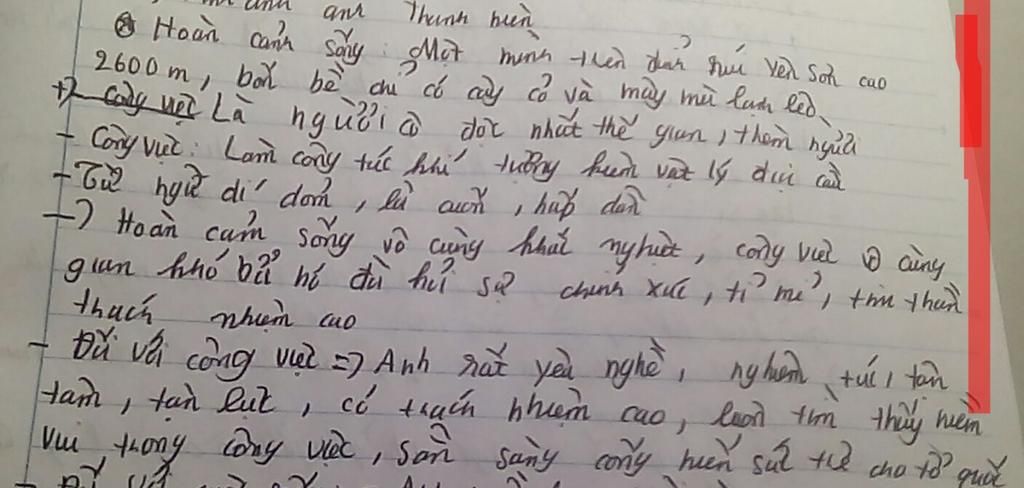 anh thanh niên
Hoàn cảnh sống: Một mình trên đỉnh núi Yên Sơn cao
2600m, bốn bề chỉ có cây cỏ và mây mù lạnh lẽo
+) Công việc Là người cô độc nhất thế gian, thèm người
- Công việc: Làm công tác khí tượng kiêm vật lý địa cầu
- Từ ngữ dí dỏm, lôi cuốn, hấp dẫn
-> Hoàn cảnh sống vô cùng khắc nghiệt, công việc vô cùng
gian khó đòi hỏi sự chính xác, tỉ mỉ, tinh thần
trách nhiệm cao
- Đối với công việc => Anh rất yêu nghề, nghiêm túc, tận
tâm, tận lực, có trách nhiệm cao, luôn tìm thấy niềm
vui trong công việc, sẵn sàng cống hiến sức trẻ cho tổ quốc